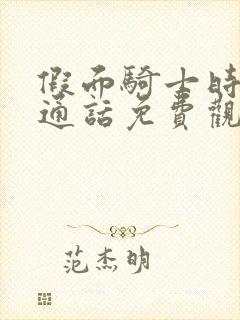 假面騎士時
通話免費觀
范杰明